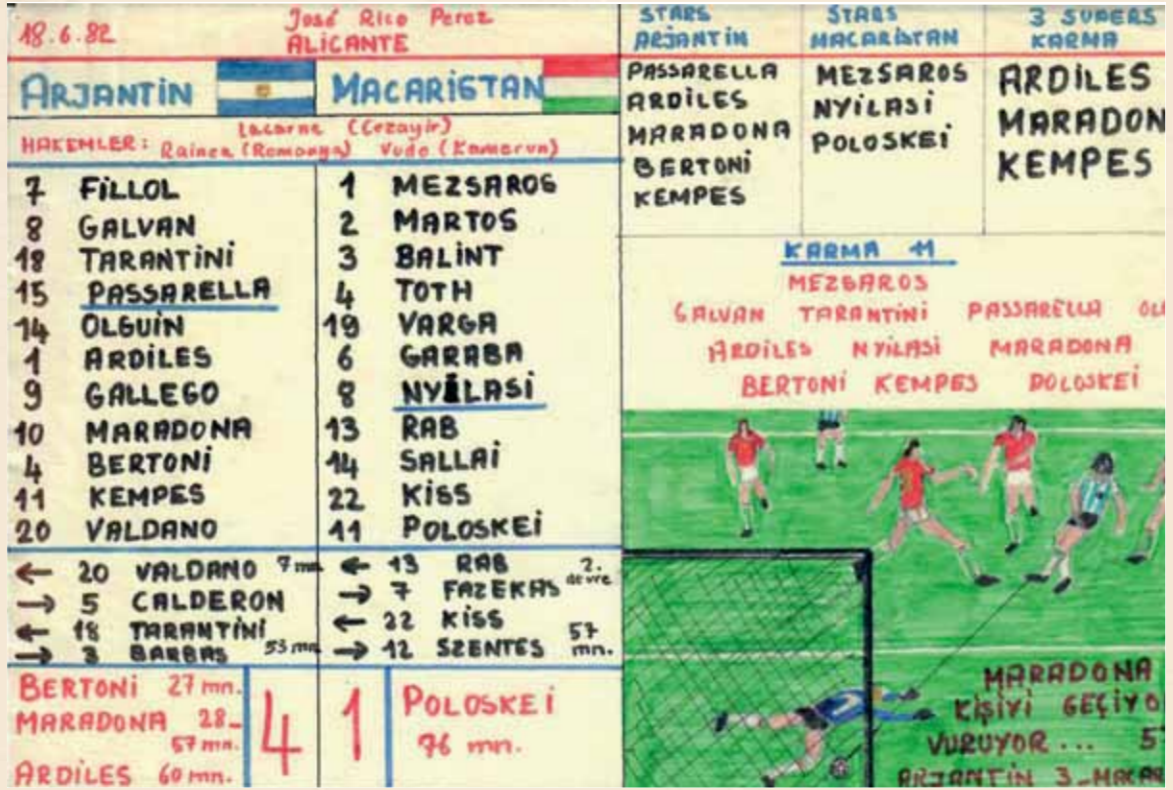 18.6.82
José Rico Perez
ALİCANTE
ARJANTİN
MACARİSTAN
HAKEMLER: Lacarne (Cezayir)
Rainea (Romanya) Vudo (Kamerun)
7 FİLLOL
8 GALVAN
18 TARANTİNİ
15 PASSARELLA
14 OLGUİN
1 ARDİLES
9 GALLEGO
10 MARADONA
4 BERTONİ
11 KEMPES
20 VALDANO
1 MEZSAROS
2 MARTOS
3 BALINT
4 TOTH
19 VARGA
6 GARABA
8 NYİLASİ
13 RAB
14 SALLAİ
22 KİSS
11 POLOSKEİ
← 20 VALDANO 7 mn
→ 5 CALDERON
← 18 TARANTİNİ
→ 3 BARBAS 53 mn
← 13 RAB 2.
→ 7 FAZEKAS devre
← 22 KİSS 57
→ 12 SZENTES mn.
BERTONİ 27 mn.
MARADONA 28-
57 mn.
ARDİLES 60 mn.
4 1
POLOSKEİ
76 mn.
STARS
ARJANTİN
PASSARELLA
ARDİLES
MARADONA
BERTONİ
KEMPES
STARS
MACARİSTAN
MEZSAROS
NYİLASİ
POLOSKEİ
3 SUPERS
KARMA
ARDİLES
MARADON
KEMPES
KARMA 11
MEZSAROS
GALVAN TARANTİNİ PASSARELLA OL
ARDİLES NYİLASİ MARADONA
BERTONİ KEMPES POLOSKEİ
MARADONA
KİŞİYİ GEÇİYO
VURUYOR... 5
ARJANTİN 3-MACAR